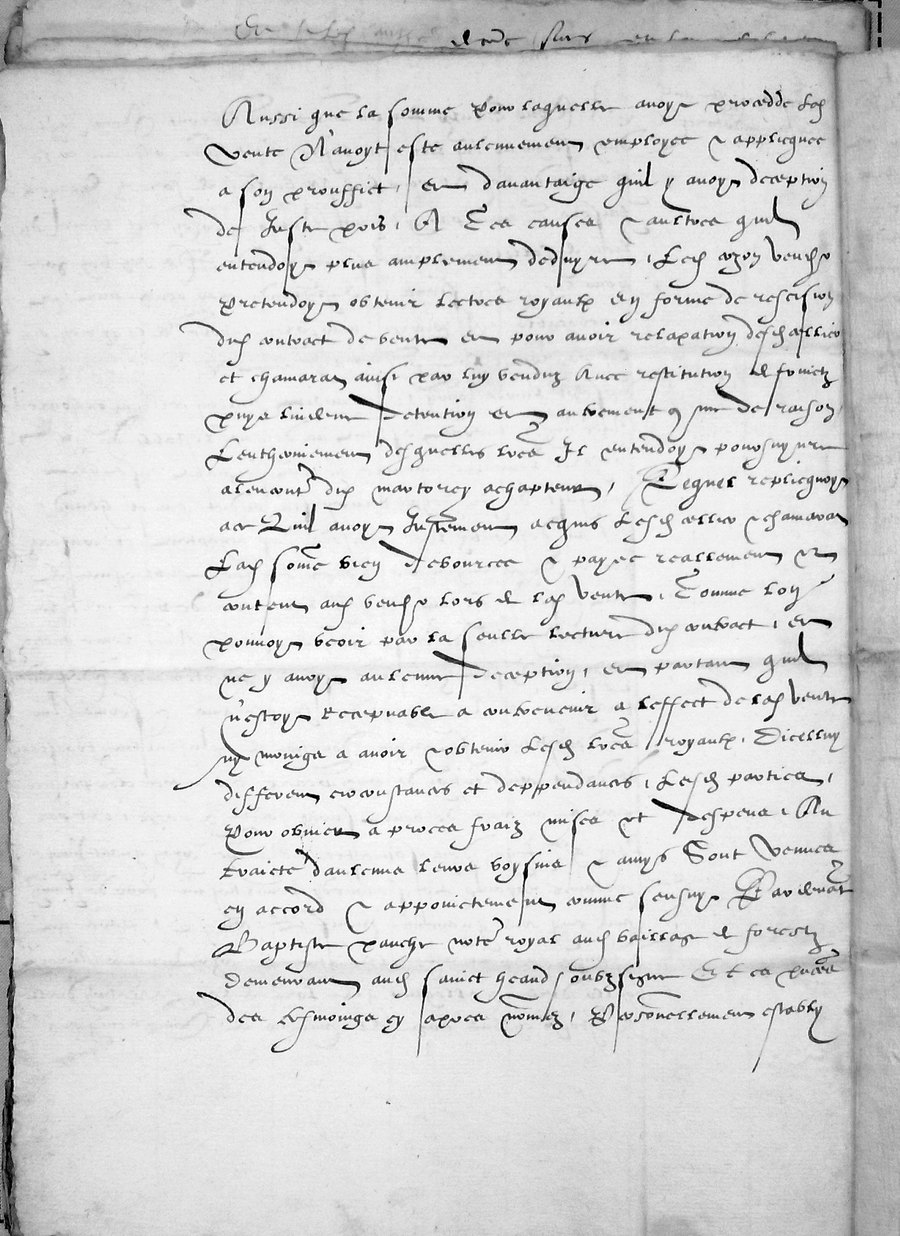 Aussi que la somme pour laquelle avoyt procedde lad
vente N'avoyt este aulcunement employee & appliquee
a son prouffict, et davantaige quil y avoyt deception
de juste pris, A Ces causes & aultres quil
entendoyt plus amplement dedhuyre, Led vend
Pretendoyt obtenir lectres royaulx en forme de rescision
dud contract de vente et pour avoir relaxation desd
et chamarat ainsi par luy venduz Avec restitution de fruictz
puys lindeue detention et aultrement comme de raison,
Lentherinement desquelles lres Il entendoyt poursuyvre
alencontre dud martorey achapteur, Lequel replicquoyt
Quil avoyt justement acquis lesd & chamarat
Lad somme bien debourcee & payee reallement &
contens aud vend lors de lad vente, Comme lon
pouvoyt veoir par la seulle lecture dud contract, et
ne y avoyt aulcune deception, et partant quil
n'estoyt recepvable a contrevenir a leffect de lad vente
ny moings a avoir & obtenir lesd lres royaulx, Dicelluy
different circonstances et deppendances, Lesd parties,
Pour obvier a proces fraiz mises et despens, Au
traicte daulcuns leurs voysins & amys Sont Venues
en accord & appoinctement comme sensuyt Par devant
Baptiste panche notre royal aud bailliage de forestz
demeurant aud sainct heand soubzsigne Et es pnces
des tesmoings cy apres nommez, Personnellement estably